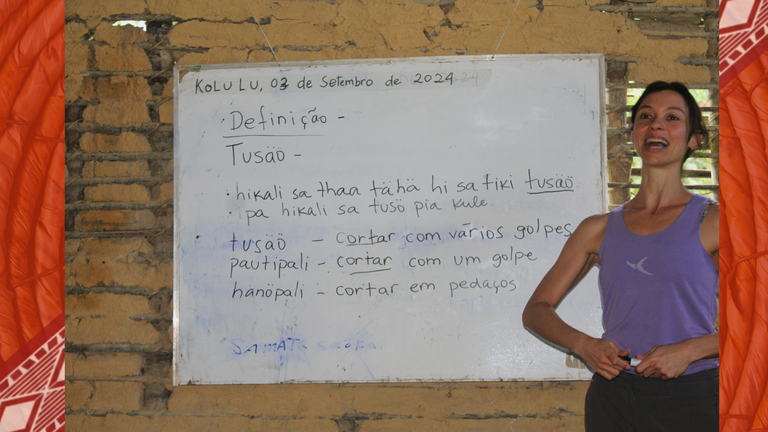 KOLULU, 03 de Setembro de 2024
Definição -
Tusäö -
• hikali sa thaa tähä hi sa tiki tusäö
• ipa hikali sa tusö pia kule
• tusäö - cortar com vários golpes
pautipali - cortar com um golpe
hanöpali - cortar em pedaços
SAMATA